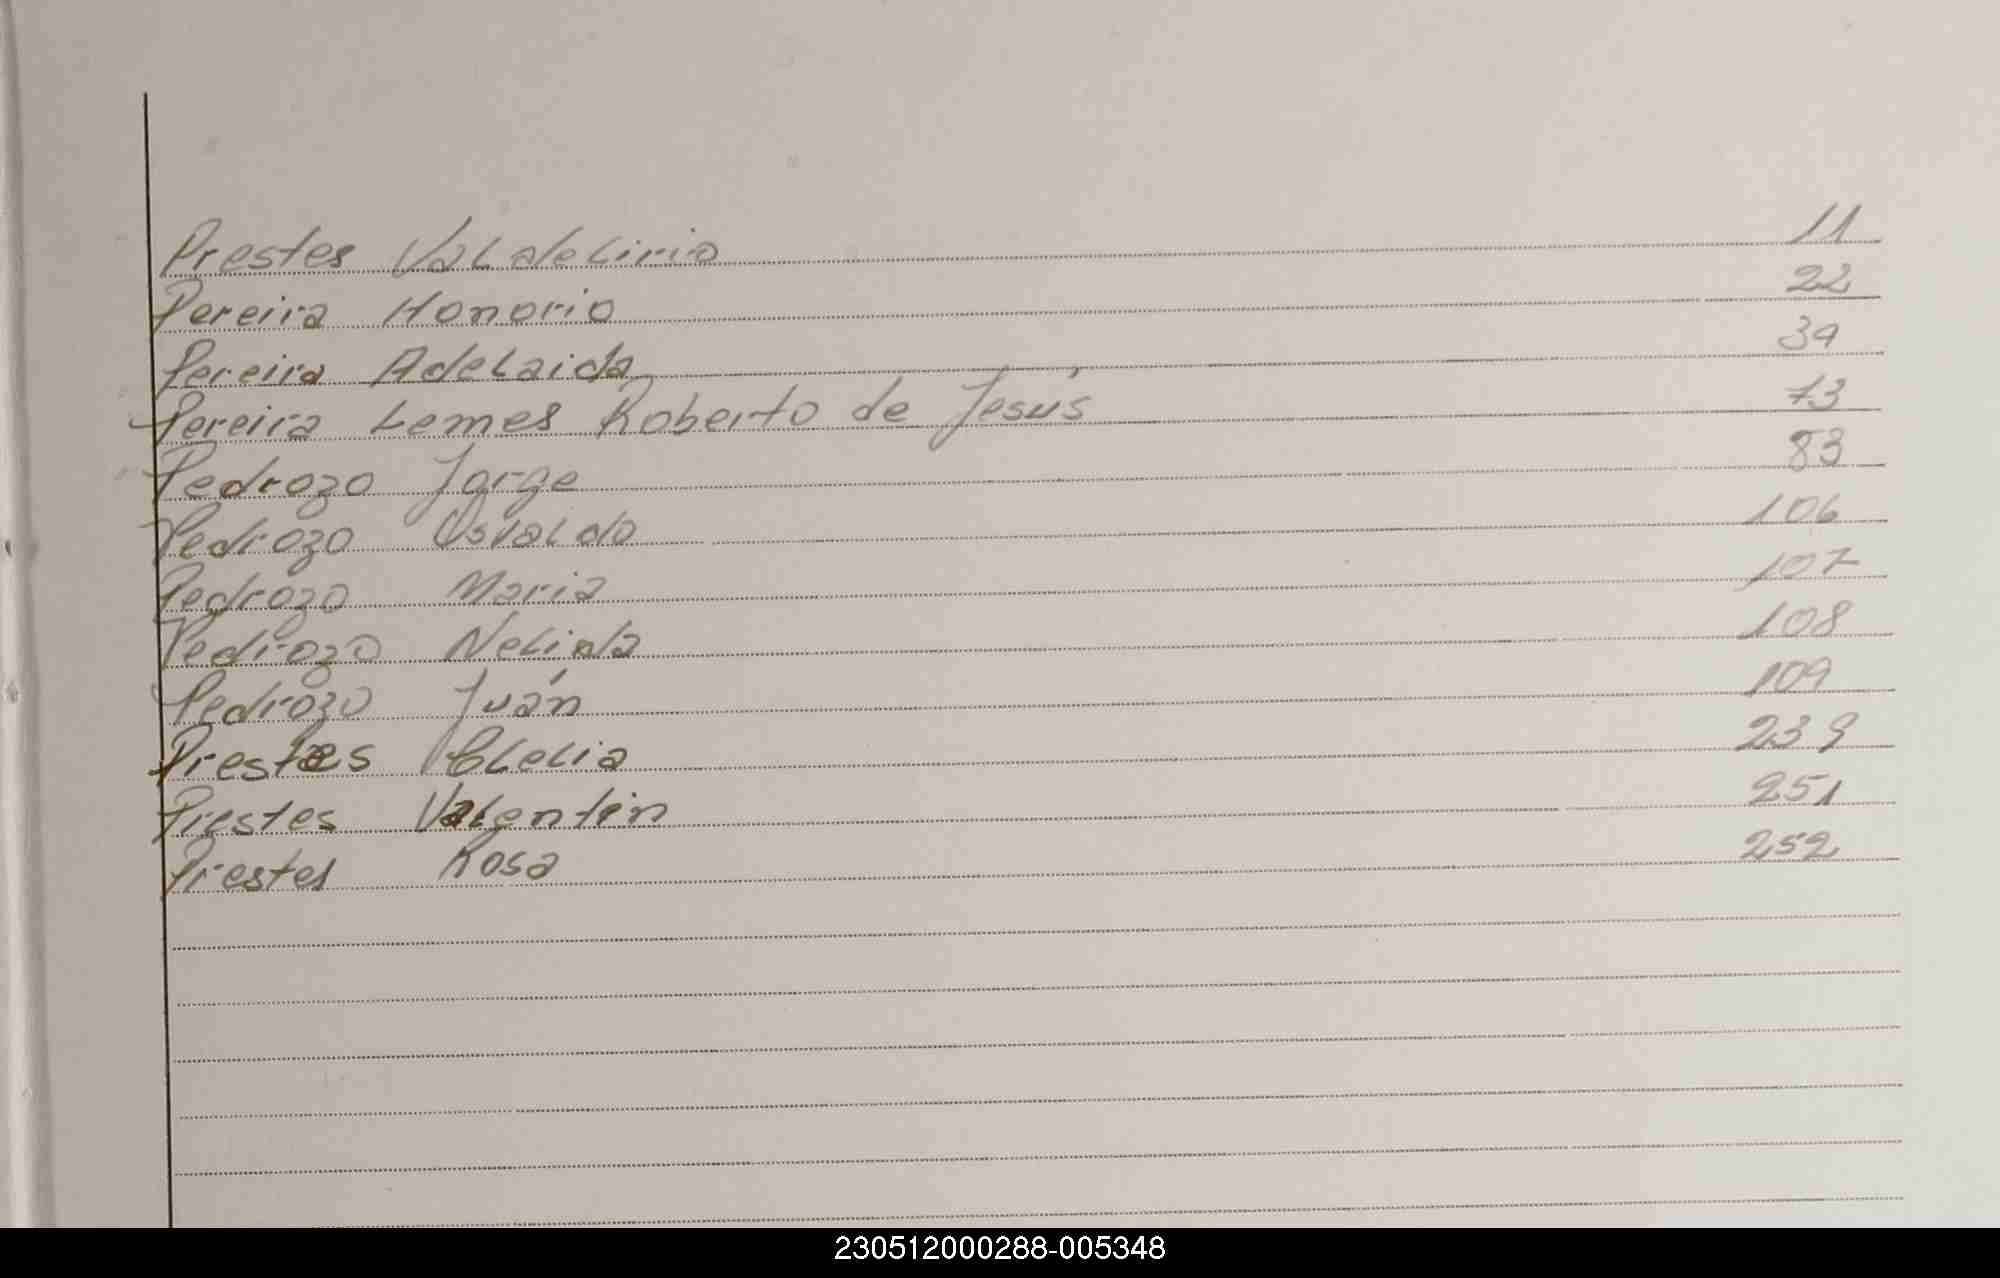 Prestes Valdeliria 11
Pereira Honorio 22
Pereira Adelaida 39
Pereira Lemes Roberto de Jesús 73
Pedrozo Jorge 83
Pedrozo Osvaldo 106
Pedrozo Maria 107
Pedrozo Nelida 108
Pedrozo Juán 109
Prestes Clelia 239
Prestes Valentin 251
Prestes Rosa 252
230512000288-005348